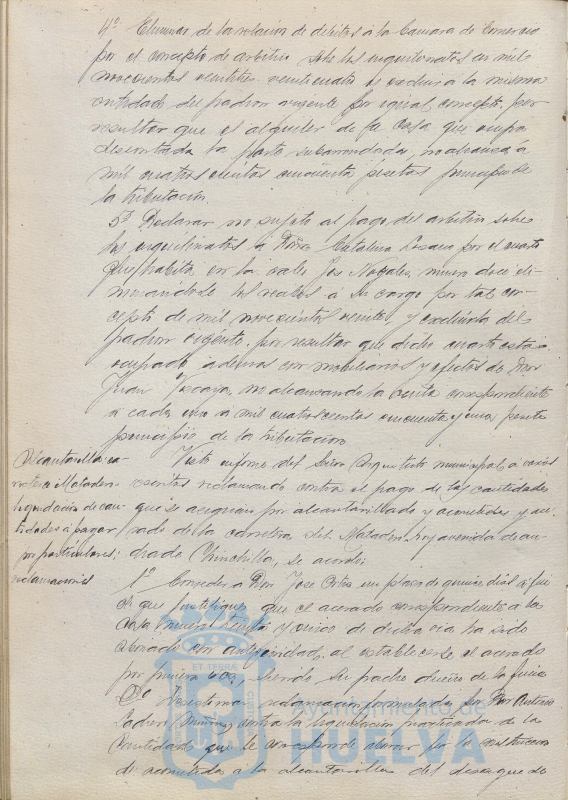 4º Eliminar de la relación de débitos á la Camara de Comercio
por el concepto de arbitrio sobre los inquilinatos en mil
novecientos veintitres veinticuatro y excluir á la misma
entidad del padron vigente por igual concepto, por
resultar que el alquiler de la casa que ocupa
descontada la parte subarrendada, no alcanza á
mil cuatrocientos cincuenta pesetas principio de
la tributación.
5º Declarar no sujeto al pago del arbitrio sobre
los inquilinatos á Doña Catalina Lozano por el cuarto
que habita en la calle Jose Nogales, numero doce eli-
minandose los recibos á su cargo por tal con-
cepto de mil novecientos veinte y excluirla del
padron vigente por resultar que dicho cuarto está
ocupado ademas con mobiliarios y efectos de Don
Juan no alcanzando la renta correspondiente
á cada uno á mil cuatrocientos cincuenta y una peseta
principio de la tributación
Alcantarilla ca-
rretera Matadero
liquidación de can-
tidades á pagar
por particulares;
reclamaciones
Visto informe del Señor Arquitecto municipal á varios
escritos reclamando contra el pago de las cantidades
que se asignan por alcantarillado y acometidas y ace-
rado de la carretera del Matadero hoy avenida de an-
drade Chinchilla, se acordó:
1º Conceder a Don Jose Ortiz un plazo de quince dias á fin
de que justifique que el acerado correspondiente á la
casa numero treinta y cinco de dicha via ha sido
abonado con anterioridad al establecerse el acerado
por primera vez, siendo su padre dueño de la finca
2º Desestimar reclamación formulada por Don Antonio
Ladero Muñoz contra la liquidacion practicada de la
cantidad que le corresponde abonar por la construccion
de acometida á la alcantarilla del desague de
ET TERRA
Ayuntamiento de
HUELVA